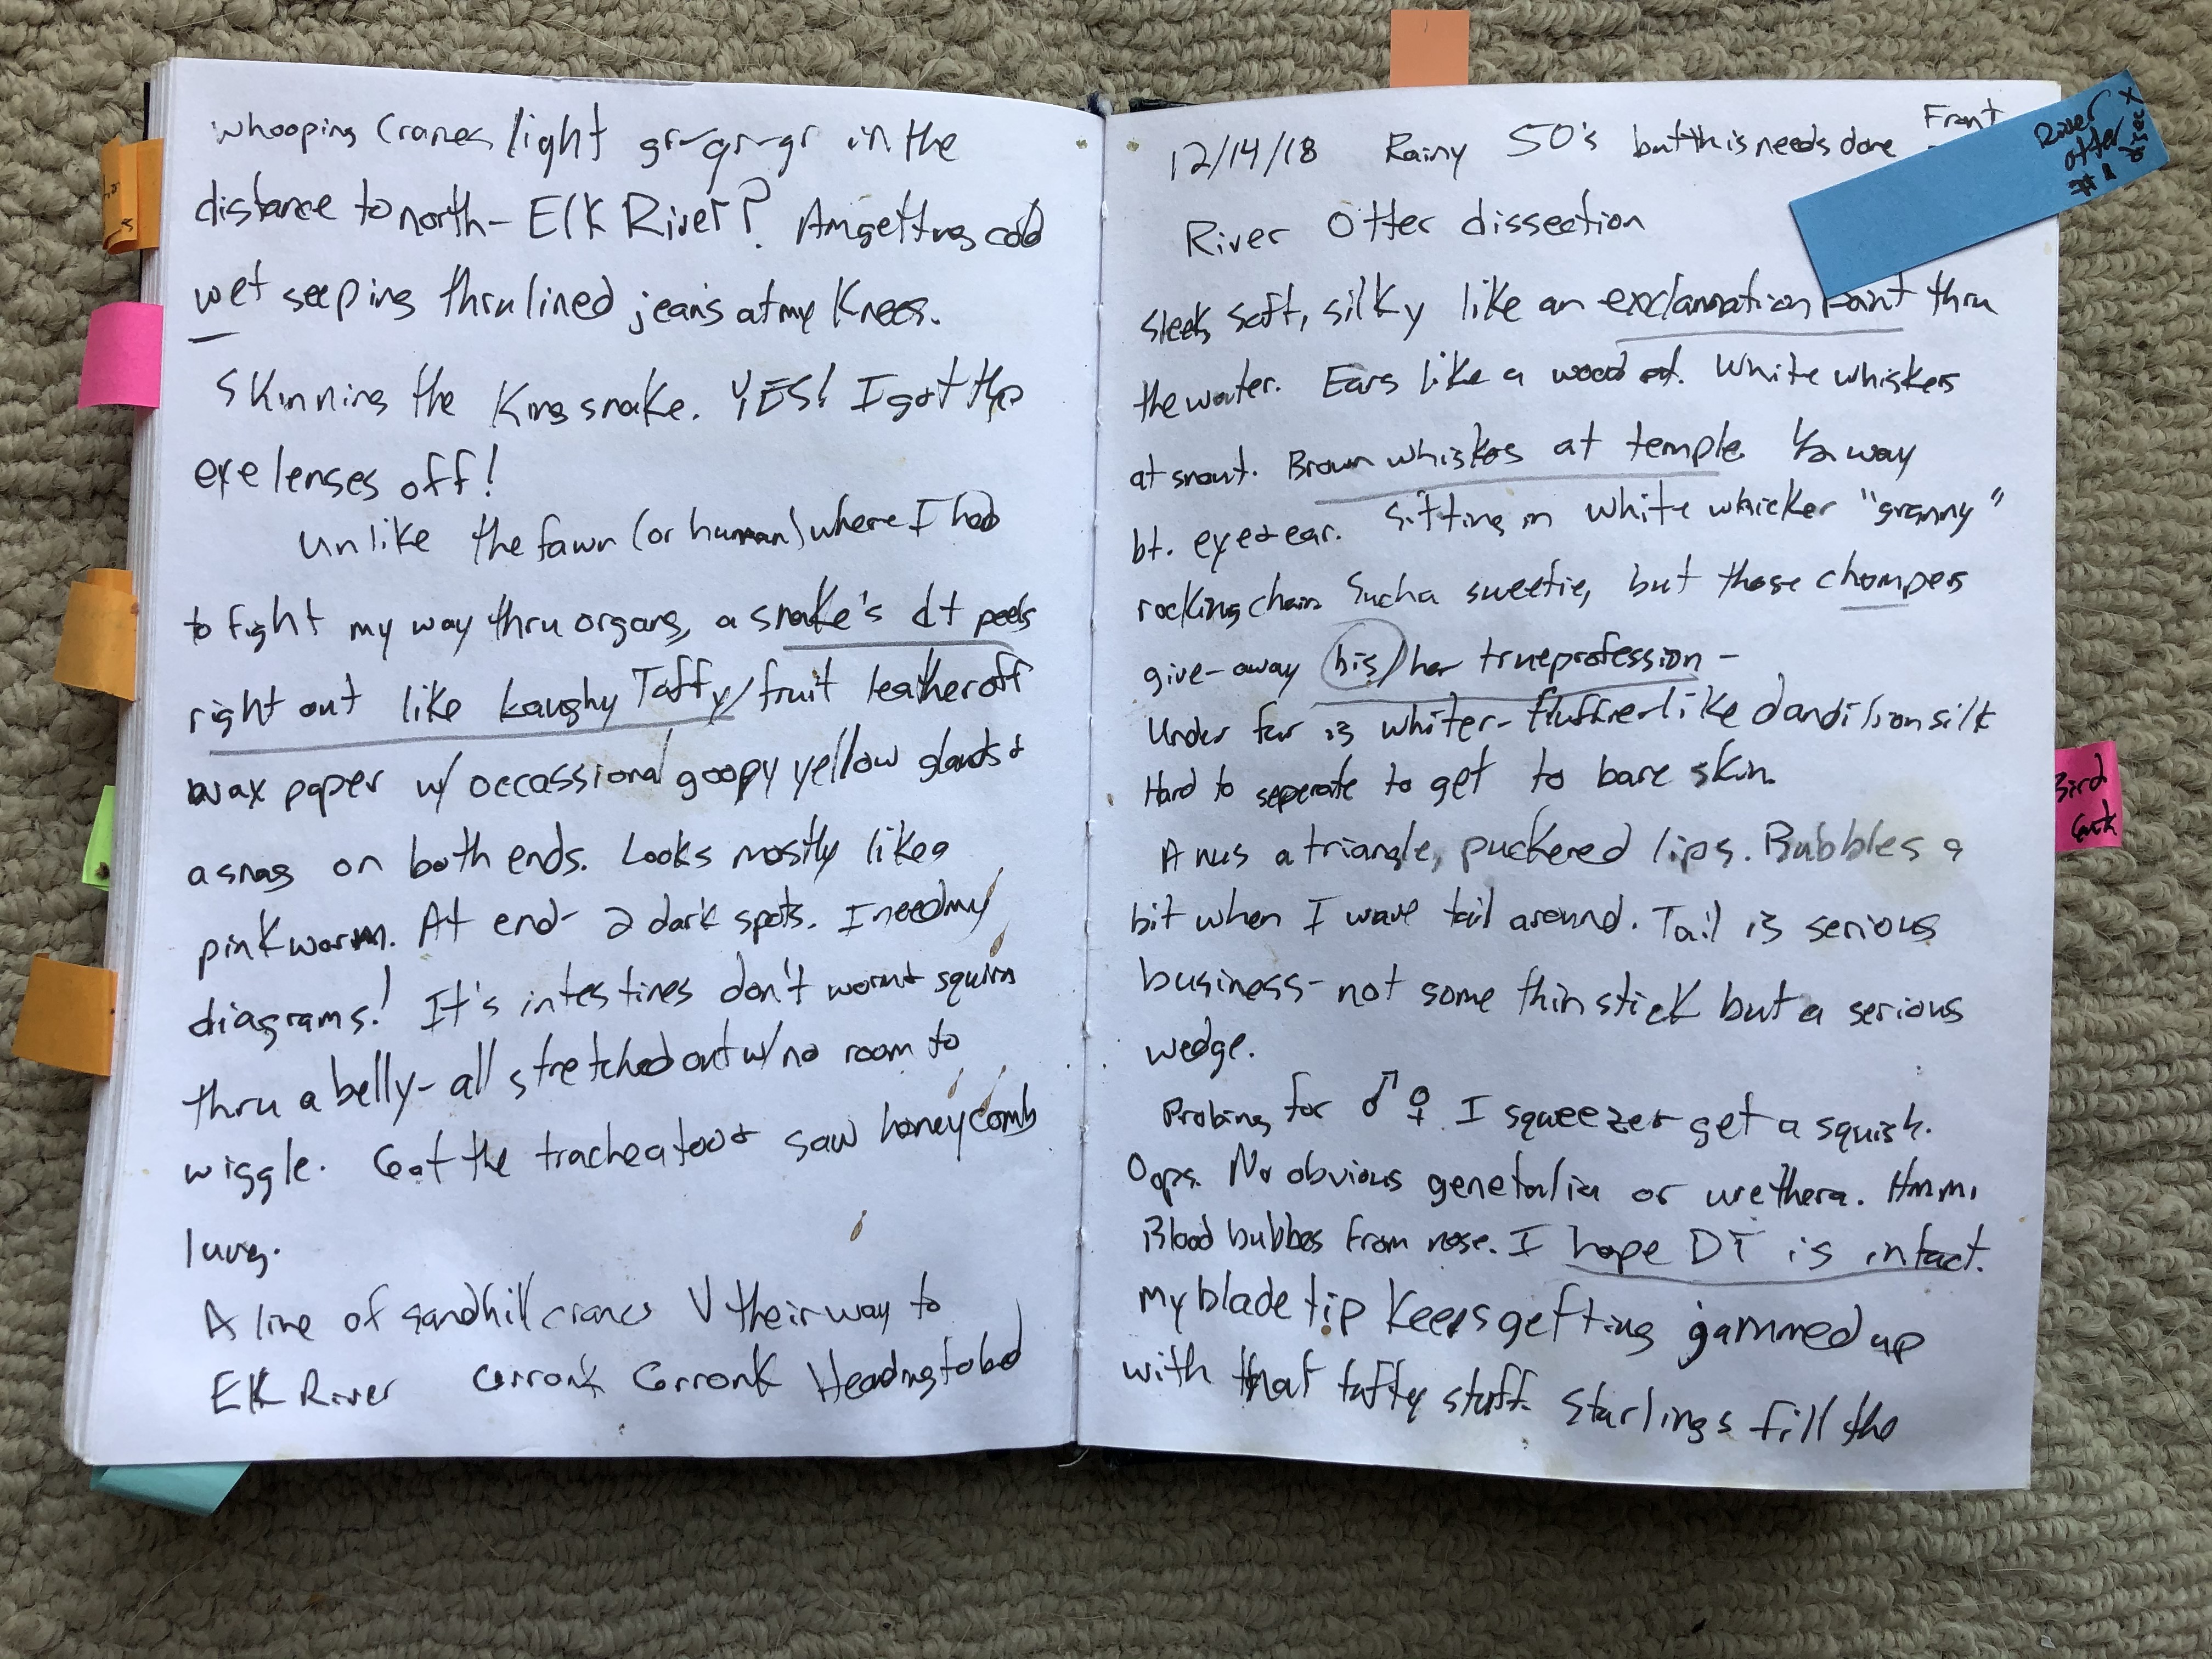 whooping cranes light gr-gr-gr in the
distance to north - Elk River? Am getting cold
wet seeping thru lined jeans at my knees.
Skinning the King snake. YES! I got the
eye lenses off!
Unlike the fawn (or human) where I had
to fight my way thru organs, a snake's dt peels
right out like Laughy Taffy/fruit leather off
wax paper w/ occassional goopy yellow glands &
a snag on both ends. Looks mostly like a
pink worm. At end - 2 dark spots. I need my
diagrams! It's intestines don't worm & squirm
thru a belly - all stretched out w/ no room to
wiggle. Got the trachea too & saw honeycomb
lung.
A line of sandhill cranes V their way to
Elk River Grronk Grronk Heading to bed
12/14/18 Rainy 50's but this needs done Front
River Otter dissection
sleek soft, silky like an exclamation point thru
the water. Ears like a wood rat. White whiskers
at snout. Brown whiskers at temple 1/2 way
bt. eye & ear. Sitting in white whicker "granny"
rocking chair. Such a sweetie, but those chompers
give-away his/her true profession -
Under fur is whiter - fluffier like dandilion silk
Hard to seperate to get to bare skin.
Anus a triangle, puckered lips. Bubbles a
bit when I wave tail around. Tail is serious
business - not some thin stick but a serious
wedge.
Probing for ♂ ♀ I squeeze & get a squish.
Oops. No obvious genetalia or urethera. Hmm.
Blood bubbles from nose. I hope DT is intact.
My blade tip keeps getting gammed up
with that taffy stuff. Starlings fill the
River
otter
#1
disex
Bird